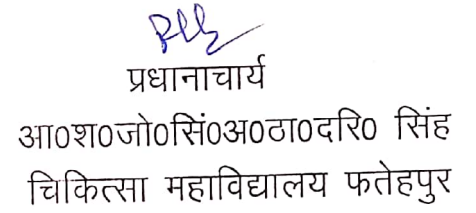 प्रधानाचार्य
आ०श०जो०सिं०अ०ठा०दरि० सिंह
चिकित्सा महाविद्यालय फतेहपुर